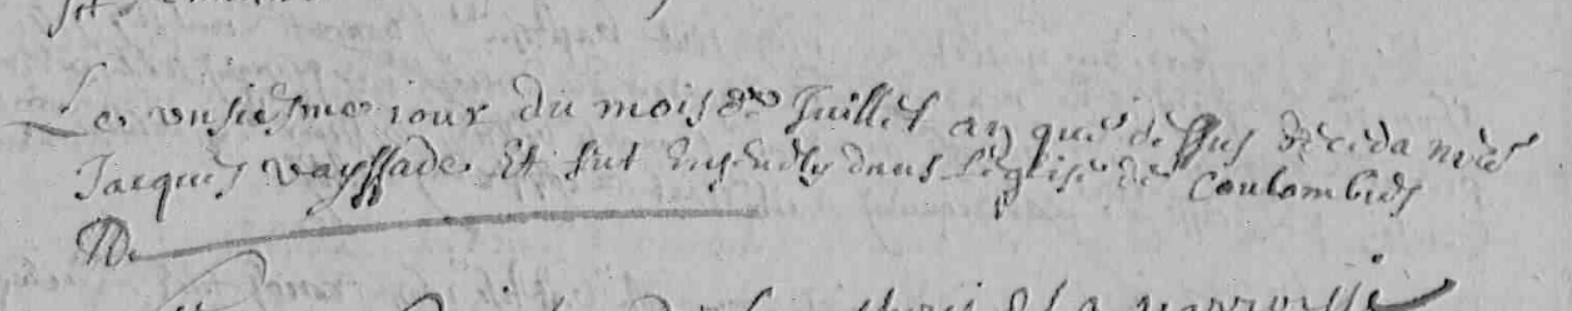 Le vnsiesme iour du mois de Juillet an que dessus deceda
Jacques vayssade Et fut Enseudly dans l'eglise de Coulombies